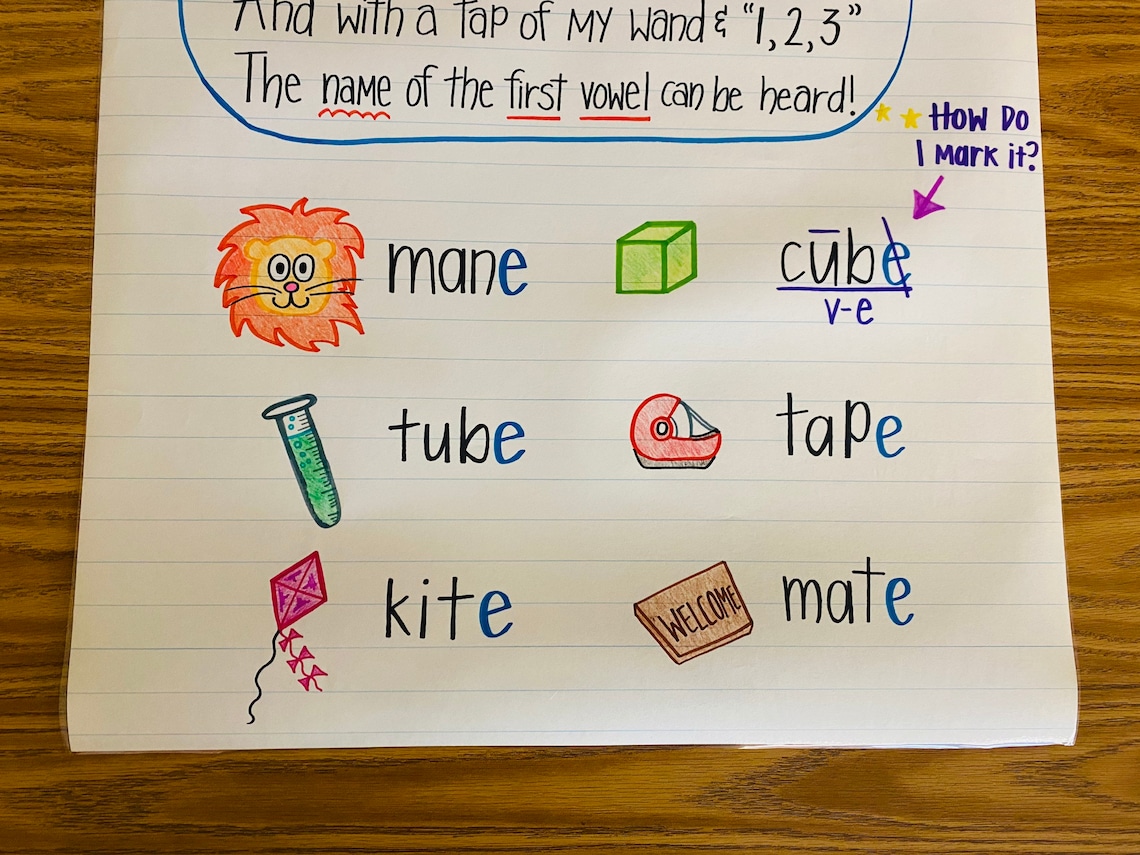 And with a tap of my wand & "1, 2, 3"
The name of the first vowel can be heard!
How Do
I Mark it?
mane
cūbe
v-e
tube
tape
kite
WELCOME
mate